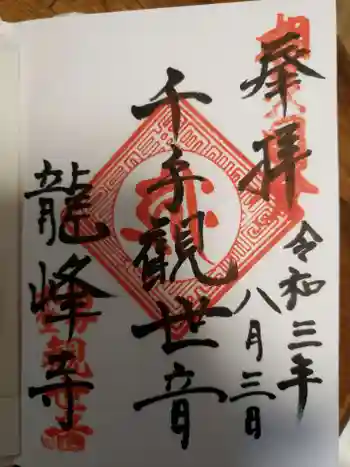 奉拝
令和三年
八月三日
千手觀世音
龍峰寺